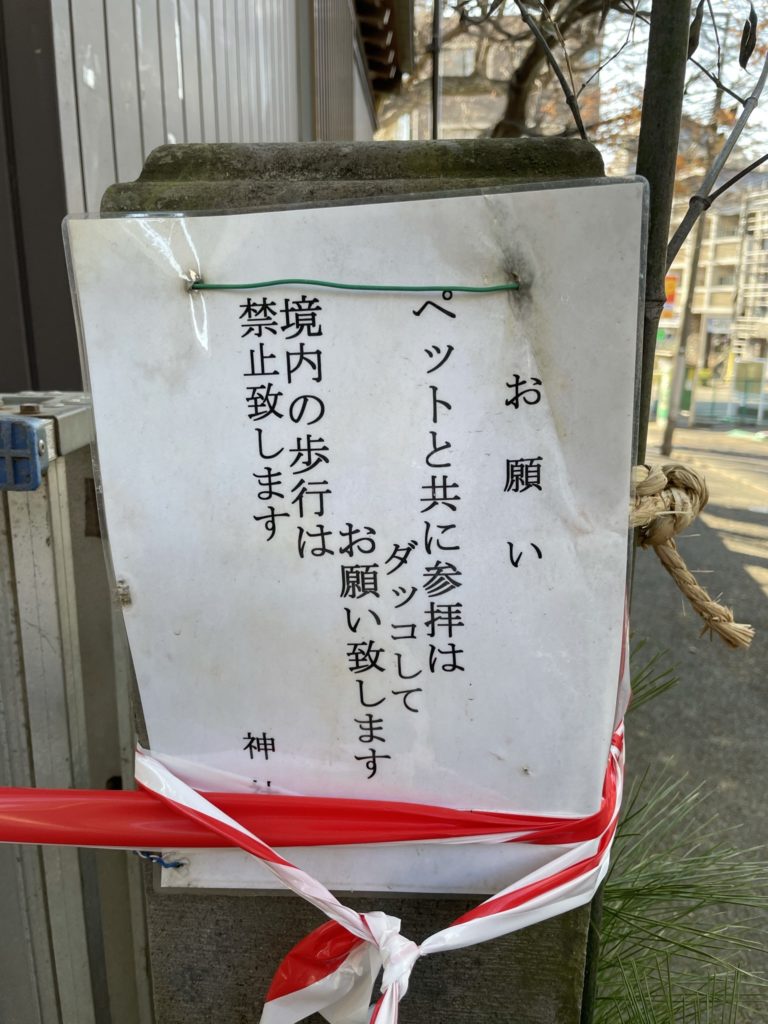 お願い
ペットと共に参拝は
ダッコして
お願い致します
境内の歩行は
禁止致します
神